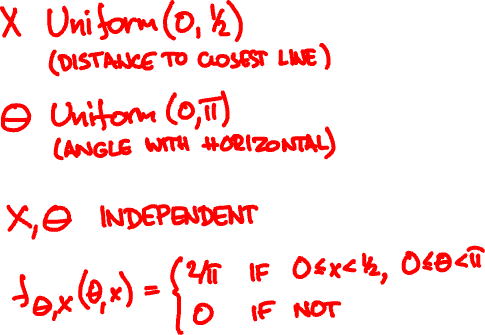 X Uniform(0, ½)
(DISTANCE TO CLOSEST LINE)
Θ Uniform(0, π)
(ANGLE WITH HORIZONTAL)
X, Θ INDEPENDENT
f_{Θ,X}(θ,x) = { 2/π IF 0≤x<½, 0≤θ<π
0 IF NOT